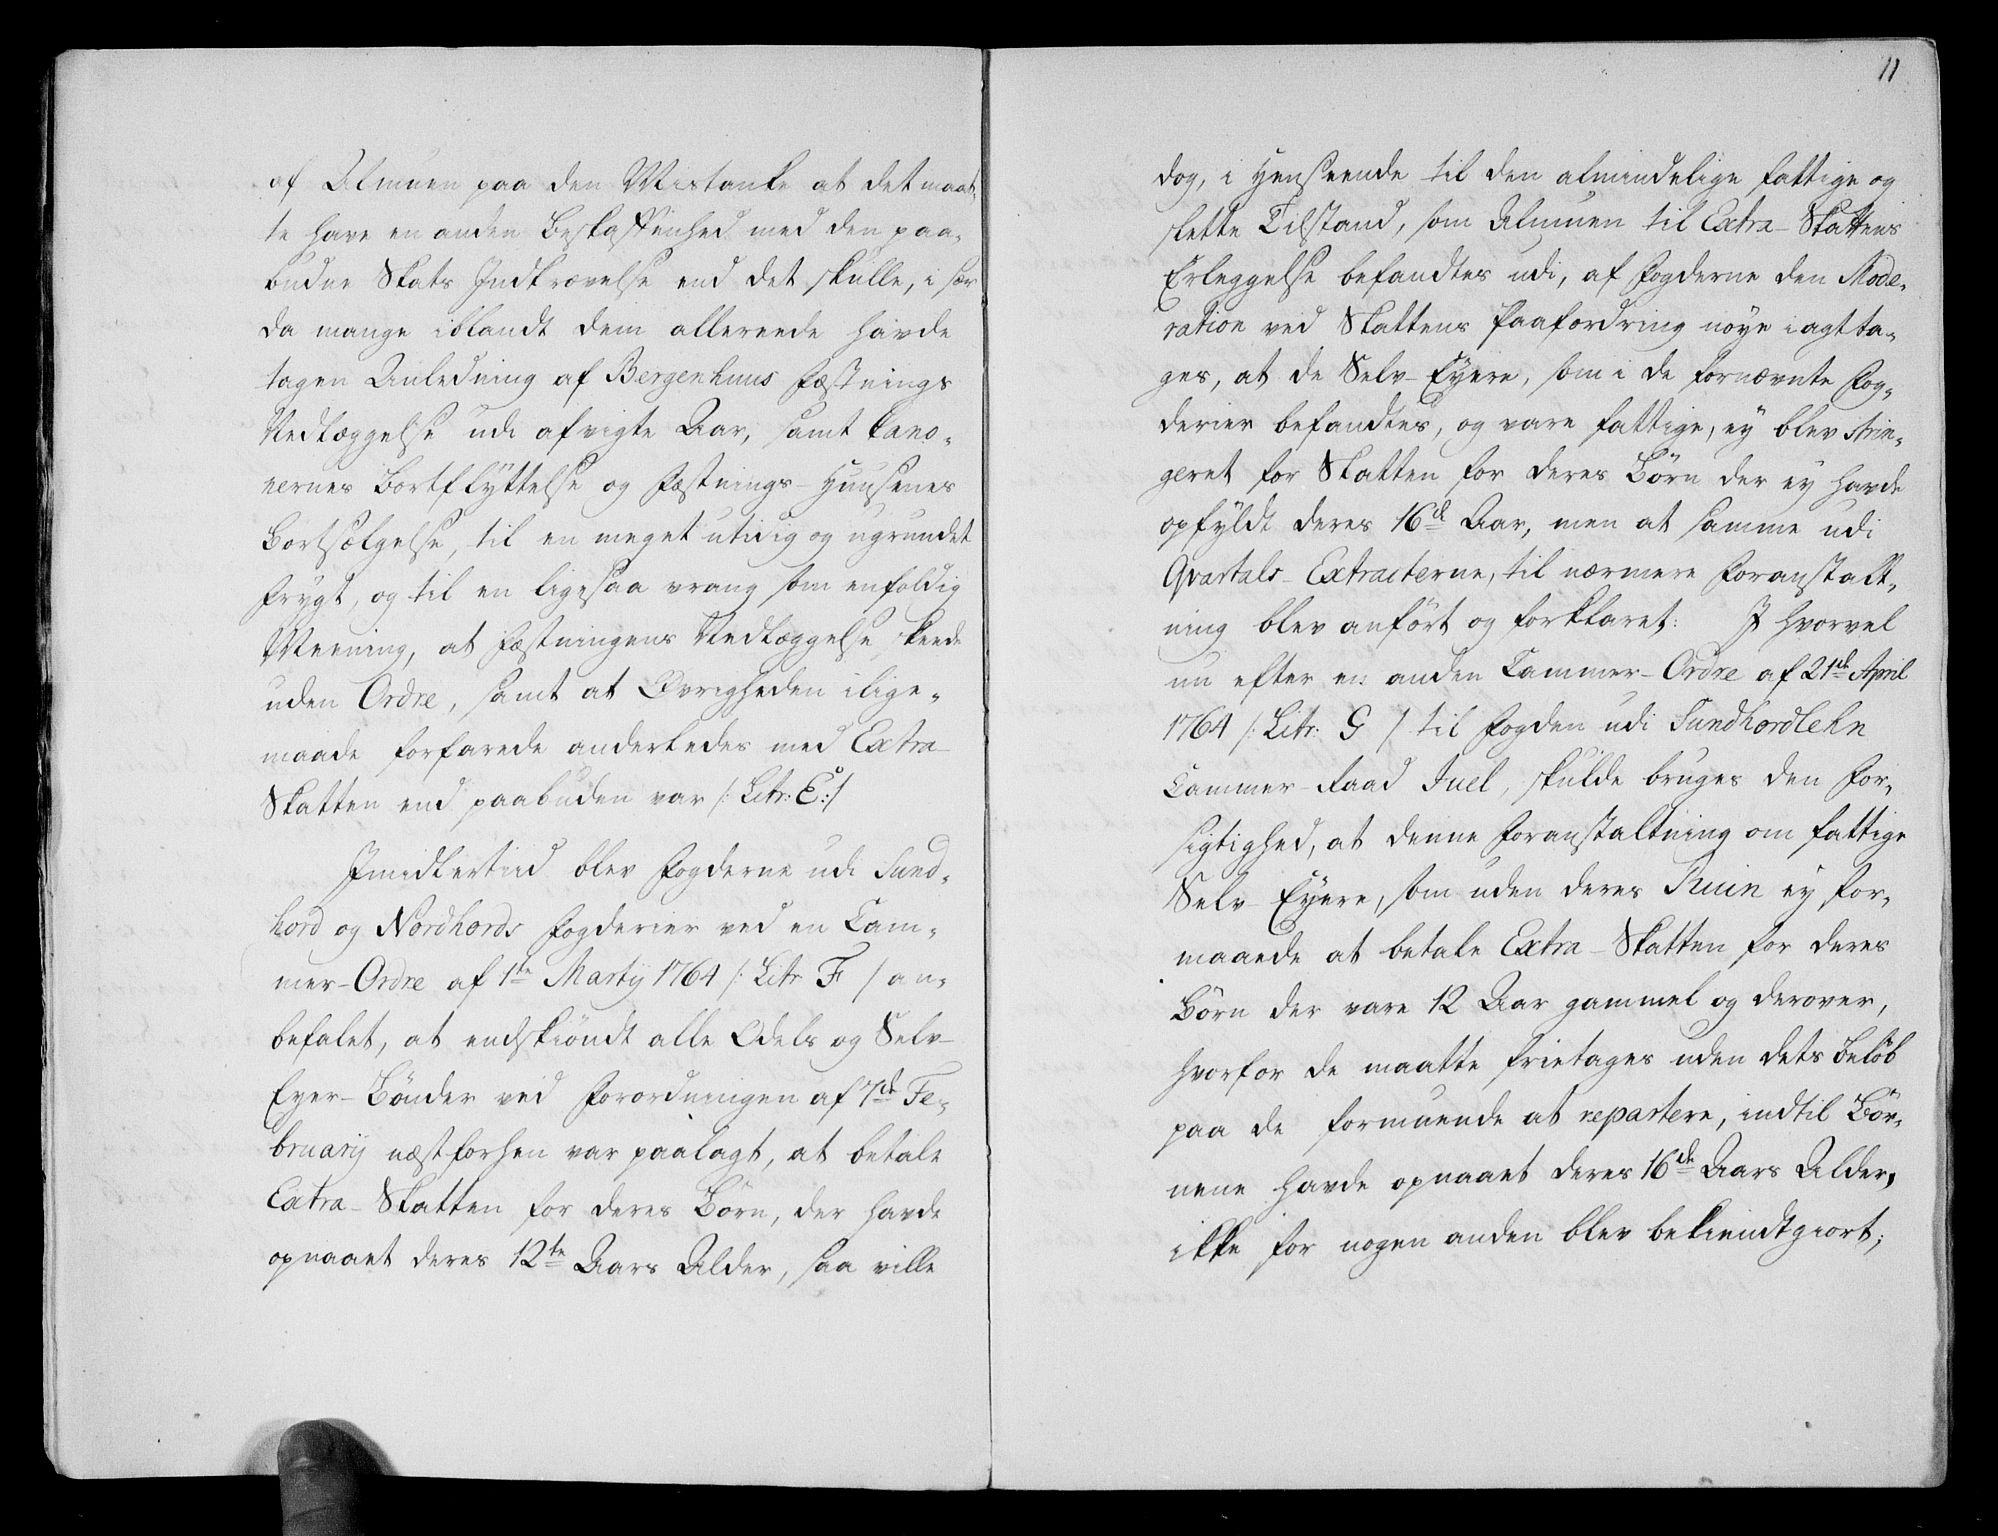 af Almuen paa den Mistanke at det maat-
te have en anden Beskaffenhed med den paa-
budne Skats Indkrævelse end det skulle, i sær
da mange iblandt dem allereede havde
tagen Anledning af Bergenhuus Fæstnings
Nedlæggelse udi afvigte Aar, samt Cano-
nernes Bortflyttelse og Fæstnings-Huusenes
Bortsælgelse, til en meget utidig og ugrundet
Frygt, og til en ligesaa vrang som enfoldig
Meening, at Fæstningens Nedlæggelse skeede
uden Ordre, samt at Øvrigheden ilige-
maade forfarede anderledes med Extra
Skatten end paabuden var /: Litr: E :/
Imidlertiid blev Fogderne udi Sund-
hord og Nordhords Fogderier ved en Cam-
mer-Ordre af 1te Martij 1764 /: Litr F / an-
befalet, at endskiøndt alle Odels og Selv-
Eyer-Bønder ved Forordningen af 7de Fe-
bruarij næstforhen var paalagt, at betale
Extra-Skatten for deres Børn, der havde
opnaaet deres 12te Aars Alder, saa ville
11
dog, i Henseende til den almindelige fattige og
slette Tilstand, som Almuen til Extra-Skattens
Erleggelse befandtes udi, af Fogderne den Mode-
ration ved Skattens Paafordring nøye iagtta-
ges, at de Selv-Eyere, som i de fornævnte Fog-
derier befandtes, og vare fattige, ey blev strin-
geret for Skatten for deres Børn der ey havde
opfyldt deres 16de Aar, men at samme udi
Qvartals-Extracterne, til nærmere Foranstalt-
ning blev anført og forklaret: I hvorvel
nu efter en anden Cammer-Ordre af 21de April
1764 /: Litr: G / til Fogden udi Sundhordlehn
Cammer-Raad Juel, skulde bruges den For-
sigtighed, at denne Foranstaltning om fattige
Selv-Eyere, som uden deres Ruin ey for-
maaede at betale Extra-Skatten for deres
Børn der vare 12 Aar gammel og derover,
hvorfor de maatte frietages uden dets Beløb
paa de formuende at repartere, indtil Bør-
nene havde opnaaet deres 16de Aars Alder,
ikke for nogen anden blev bekiendtgiort;